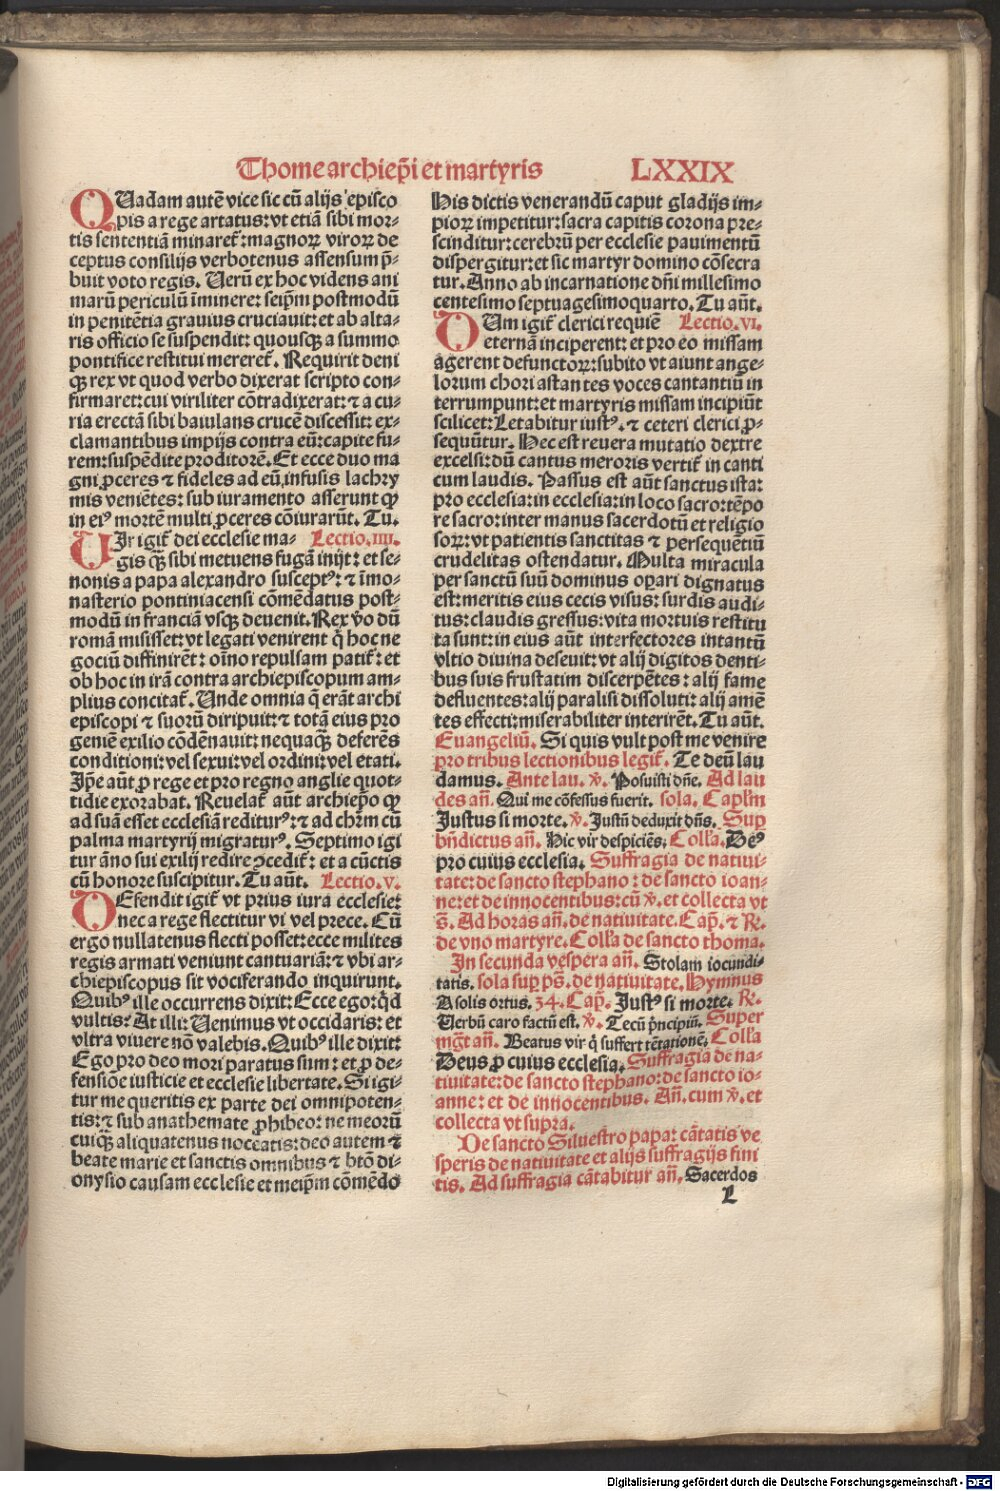 Thome archiep̄i et martyris LXXIX
QUadam autē vice sic cū alijs episco
pis a rege artatus: vt etiā sibi mor-
tis sententiā minaret᷑: magnoꝝ viroꝝ de
ceptus consilijs verbotenus assensum p̄-
buit voto regis. Uerū ex hoc videns ani
marū periculū īminere: seip̄m postmodū
in penitētia grauius cruciauit: et ab alta-
ris officio se suspendit: quousqꝫ a summo
pontifice restitui mereret᷑. Requirit deni
qꝫ rex vt quod verbo dixerat scripto con-
firmaret: cui viriliter cōtradixerat: ⁊ a cu-
ria erectā sibi baiulans crucē discessit: ex-
clamantibus impijs contra eū: capite fu-
rem: suspēdite proditorē. Et ecce duo ma
gni ꝓceres ⁊ fideles ad eū infusis lachry
mis veniētes: sub iuramento asserunt ꝙ
in eiꝰ mortē multi ꝓceres cōiurarūt. Tu.
UIr igit᷑ dei ecclesie ma- Lectio.iiij.
gis qꝫ sibi metuens fugā inijt: et se-
nonis a papa alexandro susceptꝰ: ⁊ īmo-
nasterio pontiniacensi cōmēdatus post-
modū in franciā vsqꝫ deuenit. Rex v̄o dū
romā misisset: vt legati venirent q̄ hoc ne
gociū diffinirēt: oīno repulsam patit᷑: et
ob hoc in irā contra archiepiscopum am-
plius concitat᷑. Unde omnia q̄ erāt archi
episcopi ⁊ suorū diripuit: ⁊ totā eius pro
geniē exilio cōdēnauit: nequaqꝫ deferēs
conditioni: vel sexui: vel ordini: vel etati.
Ip̄e aūt ꝓ rege et pro regno anglie quot-
tidie exorabat. Reuelat᷑ aūt archiep̄o ꝙ
ad suā esset ecclesiā rediturꝰ: ⁊ ad chr̄m cū
palma martyrij migraturꝰ. Septimo igi
tur āno sui exilij redire ꝯcedit᷑: et a cūctis
cū honore suscipitur. Tu aūt. Lectio.v.
DEfendit igit᷑ vt prius iura ecclesie:
nec a rege flectitur vi vel prece. Cū
ergo nullatenus flecti posset: ecce milites
regis armati veniunt cantuariā: ⁊ vbi ar-
chiepiscopus sit vociferando inquirunt.
Quibꝰ ille occurrens dixit: Ecce ego: q̄d
vultis? At illi: Uenimus vt occidaris: et
vltra viuere nō valebis. Quibꝰ ille dixit:
Ego pro deo mori paratus sum: et ꝓ de-
fensiōe iusticie et ecclesie libertate. Si igi-
tur me queritis ex parte dei omnipoten-
tis: ⁊ sub anathemate ꝓhibeo: ne meorū
cuiqꝫ aliquatenus noceatis: deo autem ⁊
beate marie et sanctis omnibus ⁊ btō di-
onysio causam ecclesie et meip̄m cōmēdo
His dictis venerandū caput gladijs im-
pioꝝ impetitur: sacra capitis corona pre-
scinditur: cerebrū per ecclesie pauimentū
dispergitur: et sic martyr domino cōsecra
tur. Anno ab incarnatione dn̄i millesimo
centesimo septuagesimoquarto. Tu aūt.
DUm igit᷑ clerici requiē Lectio.vi.
eternā inciperent: et pro eo missam
agerent defunctoꝝ: subito vt aiunt ange-
lorum chori astantes voces cantantiū in
terrumpunt: et martyris missam incipiūt
scilicet: Letabitur iustꝰ. ⁊ ceteri clerici ꝓ-
sequūtur. Hec est reuera mutatio dextre
excelsi: dū cantus meroris vertit᷑ in canti
cum laudis. Passus est aūt sanctus ista:
pro ecclesia: in ecclesia: in loco sacro: tēpo
re sacro: inter manus sacerdotū et religio
soꝝ: vt patientis sanctitas ⁊ persequētiū
crudelitas ostendatur. Multa miracula
per sanctū suū dominus oꝑari dignatus
est: meritis eius cecis visus: surdis audi-
tus: claudis gressus: vita mortuis restitu
ta sunt: in eius aūt interfectores intantū
vltio diuina deseuit: vt alij digitos denti-
bus suis frustatim discerpētes: alij fame
defluentes: alij paralisi dissoluti: alij amē
tes effecti: miserabiliter interirēt. Tu aūt.
Euangeliū. Si quis vult post me venire
pro tribus lectionibus legit᷑. Te deū lau
damus. Ante lau. ℣. Posuisti dn̄e. Ad lau
des añ. Qui me cōfessus fuerit. sola. Capl̄m
Justus si morte. ℣. Justū deduxit dn̄s. Sup
bn̄dictus añ. Hic vir despiciēs. Coll̄a. Deꝰ
pro cuius ecclesia. Suffragia de natiui-
tate: de sancto stephano: de sancto ioan-
ne: et de innocentibus: cū ℣. et collecta vt
s̄. Ad horas añ. de natiuitate. Cap̄. ⁊ R.
de vno martyre. Coll̄a de sancto thoma.
In secunda vespera añ. Stolam iocundi-
tatis. sola sup ps̄. de natiuitate. Hymnus
A solis ortus. 34. Cap̄. Justꝰ si morte. R.
Uerbū caro factū est. ℣. Tecū p̄ncipiū. Super
mḡt añ. Beatus vir q̄ suffert tētationē. Coll̄a
Deus ꝓ cuius ecclesia. Suffragia de na-
tiuitate: de sancto stephano: de sancto io-
anne: et de innocentibus. Añ. cum ℣. et
collecta vt supra.
De sancto Siluestro papa: cātatis ve
speris de natiuitate et alijs suffragijs fini
tis. Ad suffragia cātabitur añ. Sacerdos
L
Digitalisierung gefördert durch die Deutsche Forschungsgemeinschaft - DFG